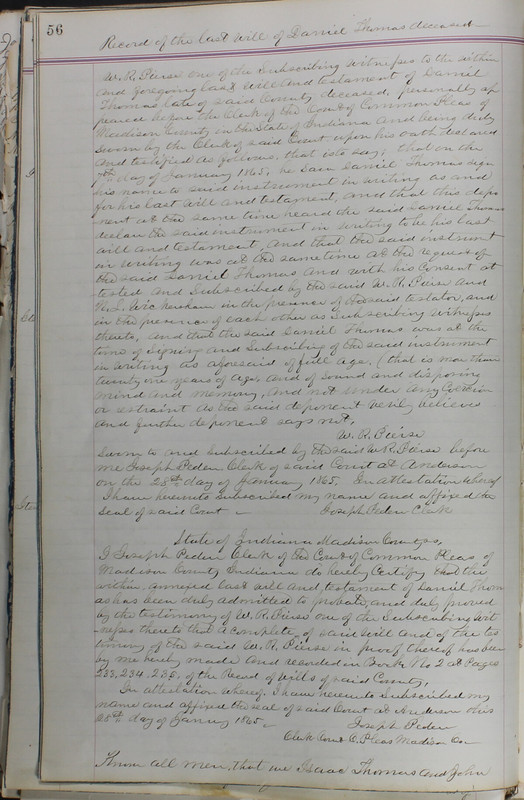 56
Record of the last Will of Daniel Thomas deceased
W. R. Pierse one of the Subscribing Witnesses to the within
and foregoing last Will and testament of Daniel
Thomas late of said County deceased, personally ap
peared before the Clerk of the Court of Common Pleas of
Madison County in the State of Indiana and being duly
Sworn by the Clerk of said Court upon his oath
and testified as follows, that is to say; that on the
7th day of January 1865, he saw Daniel Thomas sign
his name to said instrument in writing as and
for his last Will and testament, and that this depo
nent at the same time heard the said Daniel Thomas
declare the said instrument in writing to be his last
will and testament, and that the said instrument
in writing was at the same time at the request of
the said Daniel Thomas and with his consent at
tested and Subscribed by the said W. R. Pierse and
in the presence of said testator, and
in the presence of each other as Subscribing Witnesses
thereto, and that the said Daniel Thomas was at the
time of signing and Subscribing of the said instrument
in writing as aforesaid of full age, (that is more than
twenty one years of age, and of Sound and disposing
mind and memory, and not under any Coercion
or restraint as the said deponent verily believes
and further deponent says not,
W. R. Pierse
Sworn to and Subscribed by the said W. R. Pierse before
me Joseph Peden Clerk of said Court at Anderson
on the 28th day of January 1865. In attestation whereof
I have hereunto Subscribed my name and affixed the
Seal of said Court
Joseph Peden Clerk
State of Indiana Madison County ss,
I Joseph Peden Clerk of the Court of Common Pleas of
Madison County Indiana do hereby Certify that the
within annexed last will and testament of Daniel Thom
as has been duly admitted to probate, and duly proved
by the testimony of W. R. Pierse one of the Subscribing Wit
nesses thereto that a complete, of said Will and of the tes
timony of the said W. R. Pierse in proof thereof has been
by me hereby made and recorded in Book No 2 at Pages
233, 234, 235, of the Record of Wills of said County,
In attestation whereof, I have hereunto Subscribed my
name and affixed the seal of said Court at Anderson this
28th day of January 1865
Joseph Peden
Clerk Court C. Pleas Madison Co
Know all men, that we Isaac Thomas and John